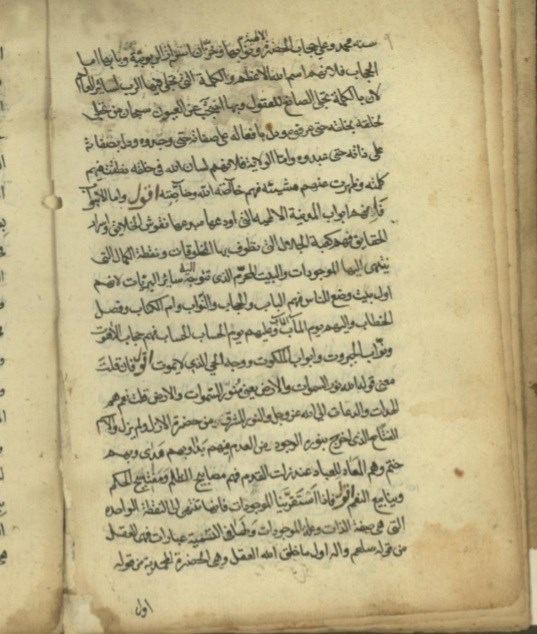 سنة محمد وعلي حجاب الحضرة ونوابها وخزان اسرار الربوبية وبابها اما
الحجاب فلانهم اسم الله الاعظم والكلمة التي تجلى فيها الرب لسائر العالم
لان بالكلمة تجلى الصانع للعقول وبها احتجب عن العيون سبحان من تجلى
لخلقه بخلقه حتى عرفوه ودل بافعاله على صفاته حتى وحدوه ودل بصفاته
على ذاته حتى عبدوه واما الولاية فلانهم لسان الله في خلقه نطقت فيهم
كلمته وظهرت عنهم مشيته فهم خاصة الله وخالصته اقول واما الابواب
فلانهم ابواب المدينة الالهية التي اودعها مبدعها نقوش الخلايق واسرار
الحقايق فهم كعبة الجلال التي تطوف بها المخلوقات ونقطة الكمال التي
ينتهي اليها الموجودات والبيت المحرم الذي تتوجه اليه سائر البريات لانهم
اول بيت وضع للناس فهم الباب والحجاب والنواب وام الكتاب وفصل
الخطاب واليهم يوم المآب وعليهم يوم الحساب الحساب فهم حجاب اللاهوت
ونواب الجبروت وابواب الملكوت ووجه الحي الذي لا يموت اقول فان قلت
معنى قوله الله نور السموات والارض يعني منور السموات والارض قلت نعم هم
الهداة والدعاة الى الله عز وجل والنور المشرق من حضرة الازل ولم يزل والاسم
الفتاح الذي اخرج بنور الوجود من العدم فبهم بدا وبهم هدى وبهم
ختم وهم المعاد للعباد عند ذرات القدم فهم مصابيح الظلم ومفاتيح الحكم
وينابيع النعم اقول فاذا استقرينا الموجودات فانها تنتهي الى النقطة الواحدة
التي هي صفة الذات وعلة الموجودات ولها في التسمية عبارات فهي العقل
من قوله صلى الله عليه واله اول ما خلق الله العقل وهي الحضرة المحمدية من قوله
اول